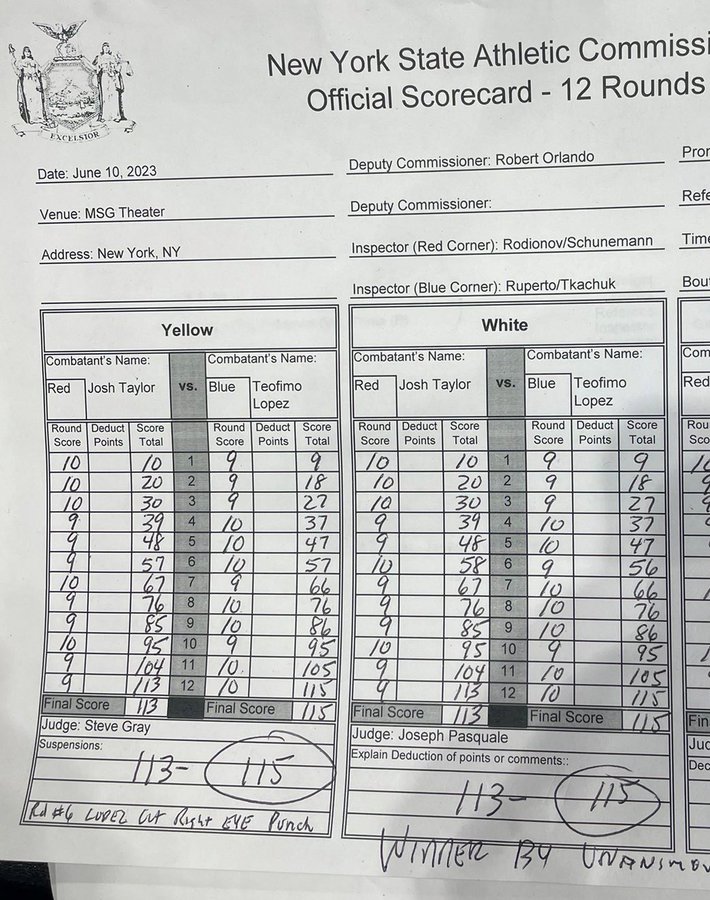 EXCELSIOR
New York State Athletic Commissi
Official Scorecard - 12 Rounds
Date: June 10, 2023
Deputy Commissioner: Robert Orlando
Pror
Venue: MSG Theater
Deputy Commissioner:
Refe
Address: New York, NY
Inspector (Red Corner): Rodionov/Schunemann
Time
Inspector (Blue Corner): Ruperto/Tkachuk
Bou
Yellow
White
Combatant's Name: Combatant's Name: Combatant's Name: Combatant's Name: Com
Red Josh Taylor vs. Blue Teofimo Lopez Red Josh Taylor vs. Blue Teofimo Lopez Red
Round Score Deduct Points Score Total Round Score Deduct Points Score Total Round Score Deduct Points Score Total Round Score Deduct Points Score Total Rou Sco
10 10 1 9 9 10 10 1 9 9 10
10 20 2 9 18 10 20 2 9 18 9
10 30 3 9 27 9 30 3 9 27 9
9 39 4 10 37 9 39 4 10 37
9 48 5 10 47 9 48 5 10 47
9 57 6 10 57 10 58 6 9 56
10 67 7 9 66 9 67 7 10 66
9 76 8 10 76 9 76 8 10 76
9 85 9 10 86 9 85 9 10 86
10 95 10 9 95 10 95 10 9 95
9 104 11 10 105 9 104 11 10 105
9 113 12 10 115 9 113 12 10 115
Final Score 113 Final Score 115 Final Score 113 Final Score 115 Fin
Judge: Steve Gray
Judge: Joseph Pasquale
Jud
Suspensions:
Explain Deduction of points or comments::
Dec
113- 115
113- 115
Rd #6 LOPEZ CUT Right EYE Punch
WINNER BY